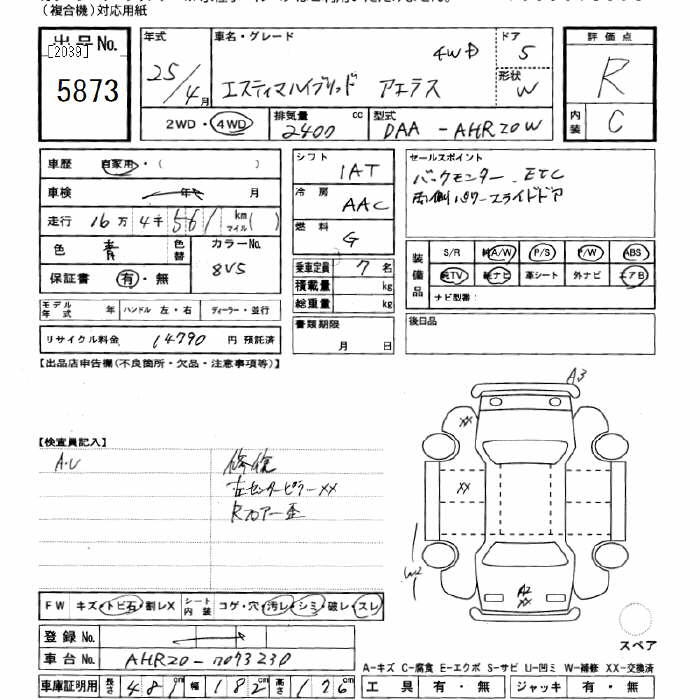 (複合機)対応用紙
出品No.
[2039]
5873
年式
25/4月
車名・グレード
4WD
エスティマハイブリッド アエラス
ドア
5
形状
W
評価点
R
内装
C
2WD・4WD
排気量
2400 cc
型式
DAA-AHR20W
車歴 自家用・( )
車検 年 月
走行 16万4千561 km マイル( )
色 青
色替
カラーNo.
8V5
保証書 有・無
モデル年式 年 ハンドル 左・右 ディーラー・並行
リサイクル料金 14790 円 預託済
シフト
IAT
冷房
AAC
燃料
G
乗車定員 7名
積載量 kg
総重量 kg
書類期限
月 日
セールスポイント
バックモニター、ETC
両側パワースライドドア
装備品
S/R 純A/W P/S P/W ABS
純TV 純ナビ 革シート 外ナビ エアB
ナビ型番:
後日品
【出品店申告欄(不良箇所・欠品・注意事項等)】
【検査員記入】
A.U
修復
左センターピラーXX
Rフロアー歪
A3
XX
XX
W2
A2
XX
スペア
FW キズ・トビ石・割レX シート内装 コゲ・穴・汚レ・シミ・破レ・スレ
登録No.
車台No. AHR20-7073230
車庫証明用 長さ 481 幅 182 高さ 176
A-キズ C-腐食 E-エクボ S-サビ U-凹ミ W-補修 XX-交換済
工具 有・無 ジャッキ 有・無